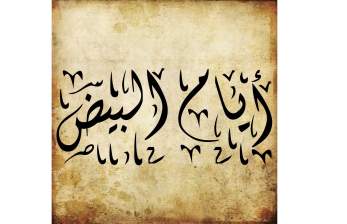 أيام البيض